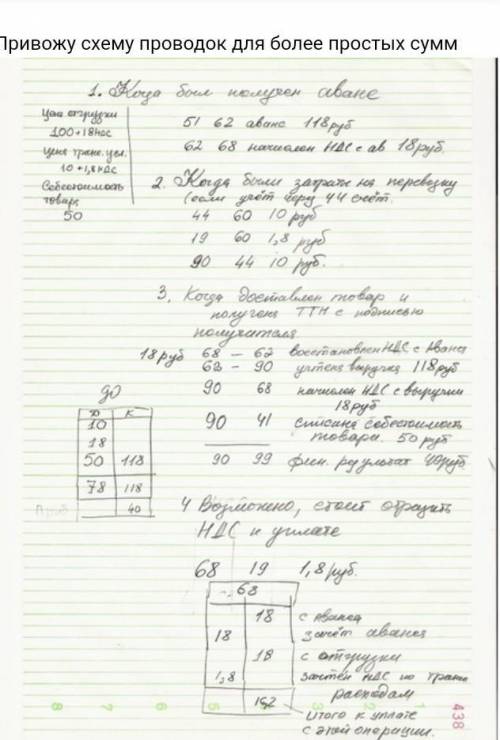 Привожу схему проводок для более простых сумм
1. Когда был получен аванс
Цена отгрузки
100+18 НДС
Цена транс. усл.
10+1,8 НДС
Себестоимость
товара
50
51 62 аванс 118 руб
62 68 начислен НДС с ав 18 руб.
2. Когда были затраты на перевозку
(если учёт через 44 счёт.
44 60 10 руб
19 60 1,8 руб
90 44 10 руб.
3. Когда доставлен товар и
получена ТТН с подписью
получателя
18 руб 68 - 62 восстановлен НДС с аванса
62 - 90 учтена выручка 118 руб
90 68 начислен НДС с выручки
18 руб
90 41 списана себестоимость
товара. 50 руб
90 99 фин. результат 40 руб.
90
Д К
10
18
50 118
78 118
40
4 Возможно, стоит отразить
НДС к уплате
68 19 1,8 руб.
68
18 с аванса
18 зачёт аванса
18 с отгрузки
1,8 зачтён НДС по транс
расходам
16,2 итого к уплате
с этой операции.
8 7 6 5 4 2 1 438